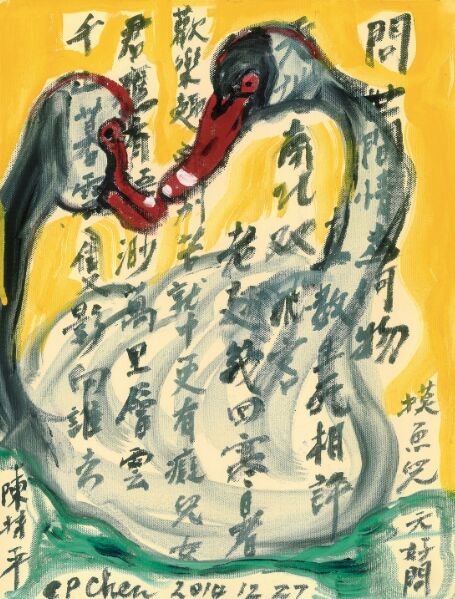 問世間情是何物
直教生死相許
南北双飛客
老翅幾回寒暑
歡樂趣別苦就中更有癡兒女
君應有語渺萬里層雲
千山暮雪隻影向誰去
摸魚兒 元好問
陳平
CP Chen 2014 12 27